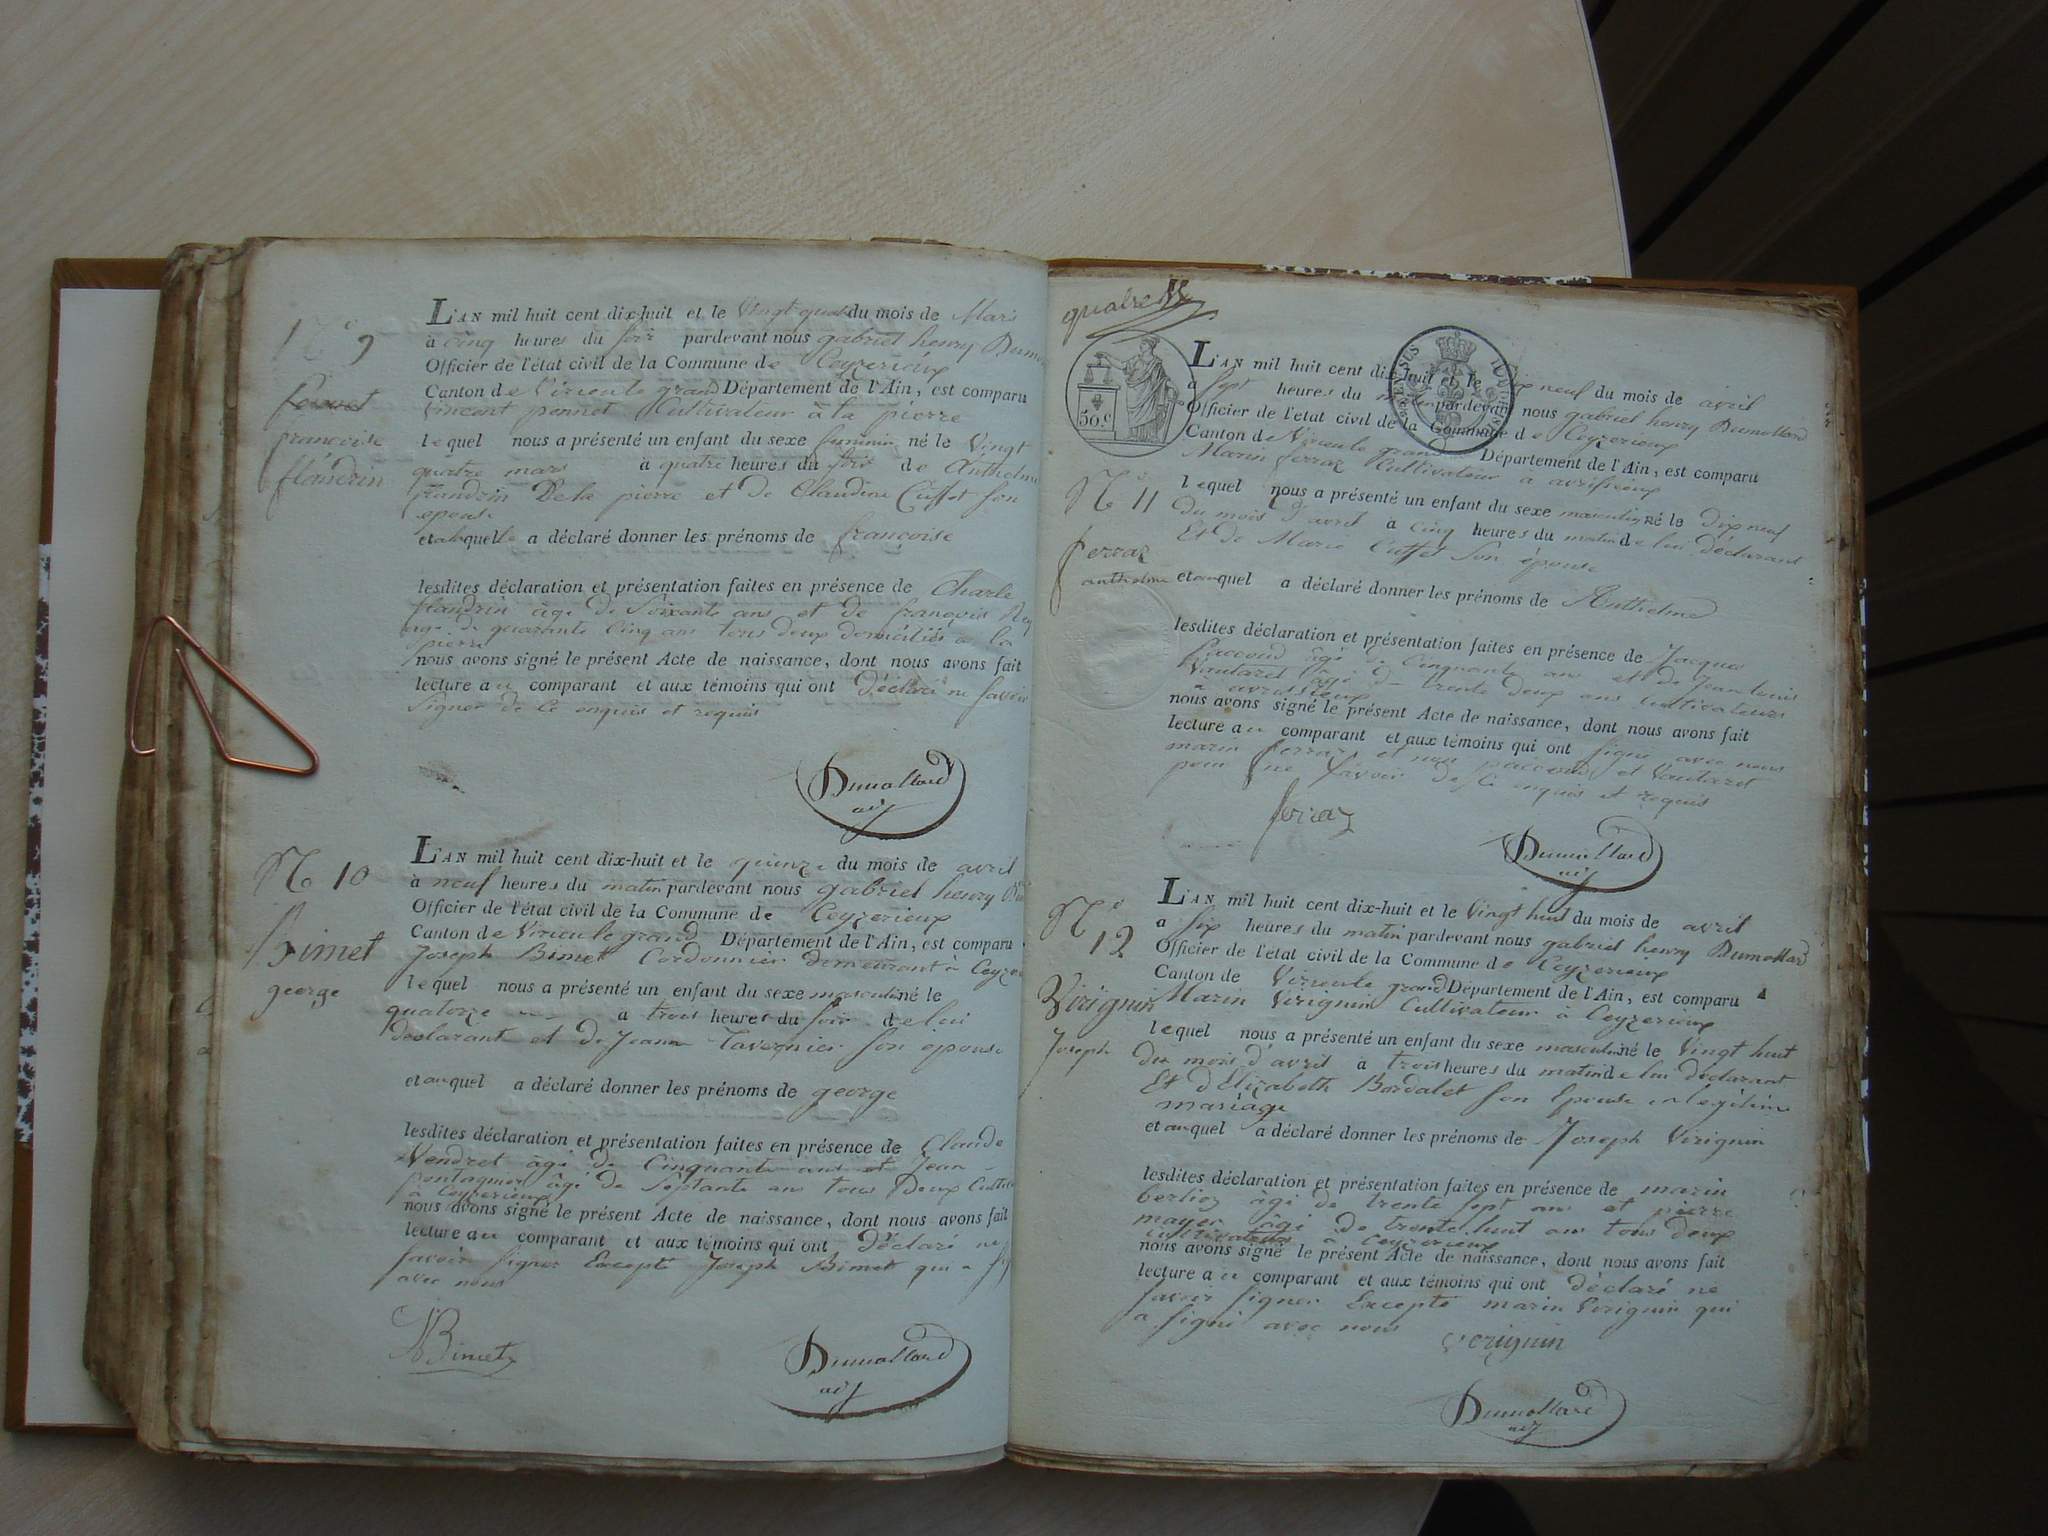 N° 9
Perret
françoise
flandrin
L'AN mil huit cent dix-huit et le Vingt quat du mois de Mars
à cinq heures du soir pardevant nous gabriel henry Dumo
Officier de l'état civil de la Commune de Ceyzerieux
Canton de Virieu le grand Département de l'Ain, est comparu
Vincent pennet Cultivateur à la pierre
lequel nous a présenté un enfant du sexe feminin né le Vingt
quatre mars à quatre heures du soir de Anthelme
flandrin De la pierre et de Claudine Cusset son
epouse
et auquelle a déclaré donner les prénoms de françoise
lesdites déclaration et présentation faites en présence de Charle
flandrin âgé de Soixante ans et de françois Rey
agé de quarante Cinq ans tous deux domiciliés a la
pierre
nous avons signé le présent Acte de naissance, dont nous avons fait
lecture au comparant et aux témoins qui ont déclaré ne savoir
Signer de Ce enquis et requis
Dumollard
adj
N° 10
Bimet
george
L'AN mil huit cent dix-huit et le quinze du mois de avril
à neuf heures du matin pardevant nous gabriel henry
Officier de l'état civil de la Commune de Ceyzerieux
Canton de Virieu le grand Département de l'Ain, est comparu
Joseph Bimet Cordonnier demeurant à Ceyze
lequel nous a présenté un enfant du sexe masculin né le
quatorze à trois heures du soir de lui
declarant et de Jeanne Tavernier son epouse
et auquel a déclaré donner les prénoms de george
lesdites déclaration et présentation faites en présence de Claude
Vendret âgé de Cinquante ans et Jean
pontagnier âgé de Septante ans tous Deux Cultiv
à Ceyzerieux
nous avons signé le présent Acte de naissance, dont nous avons fait
lecture au comparant et aux témoins qui ont Déclaré ne
savoir signer Excepté Joseph Bimet qui a sig
avec nous
JBimet
Dumollard
adj
quatre
50 C
L'AN mil huit cent dix-huit et le Dix neuf du mois de avril
a sept heures du matin pardevant nous gabriel henry Dumollard
Officier de l'etat civil de la Commune de Ceyzerieux
Canton de Virieu le grand Département de l'Ain, est comparu
Marin ferraz Cultivateur a avrissieux
N° 11
ferraz
anthelme
lequel nous a présenté un enfant du sexe masculin né le dix neuf
du mois d'avril à cinq heures du matin de lui déclarant
Et de Marie Cusset son épouse
et auquel a déclaré donner les prénoms de Anthelme
lesdites déclaration et présentation faites en présence de Jacques
paccoud âgé de Cinquante ans et de Jean louis
Vautaret âgé de trente deux ans cultivateurs
à avrissieux
nous avons signé le présent Acte de naissance, dont nous avons fait
lecture au comparant et aux témoins qui ont signé avec nous
marin ferraz et non paccoud et Vautaret
pour ne savoir de Ce enquis et requis
ferraz
Dumollard
adj
N° 12
Virignin
Joseph
L'AN mil huit cent dix-huit et le Vingt huit du mois de avril
a six heures du matin pardevant nous gabriel henry Dumollard
Officier de l'état civil de la Commune de Ceyzerieux
Canton de Virieu le grand Département de l'Ain, est comparu
Marin Virignin Cultivateur à Ceyzerieux
lequel nous a présenté un enfant du sexe masculin né le Vingt huit
du mois d'avril à trois heures du matin de lui déclarant
Et d'Elizabeth Bordalet son Epouse en legitime
mariage
et auquel a déclaré donner les prénoms de Joseph Virignin
lesdites déclaration et présentation faites en présence de marin
berlioz âgé de trente sept ans et pierre
mayer âgé de trente huit ans tous deux
cultivateurs à Ceyzerieux
nous avons signé le présent Acte de naissance, dont nous avons fait
lecture au comparant et aux témoins qui ont déclaré ne
savoir signer Excepté marin Virignin qui
a signé avec nous
verignin
Dumollard
adj